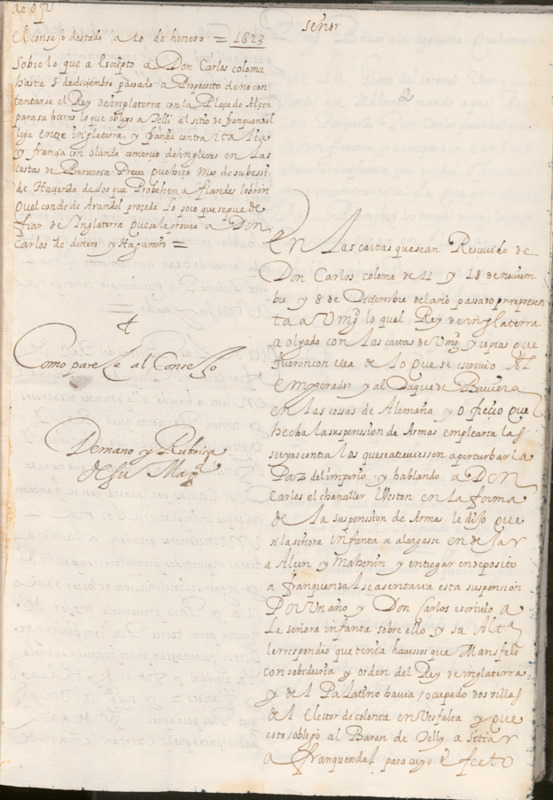 de of.º
El consejo destado a 10 de henero = 1623
Sobre lo que a escripto a Don Carlos coloma
hasta 8 de diciembre pasado a Proposito de no con
tentarse el Rey de inglaterra con la Plaça de Alcin
para su hierno lo que obligo a Telli al sitio de franquendal
liga entre inglaterra, y frança contra italia
y francia con olanda comercio de ingleses en las
costas de Berueria Presa que hiço Mos de subcessi
de Hacienda de los que Probehen a flandes lobrin
que el conde de Arundel procede lo poco que se puede
fiar de Inglaterra que se le provea a Don
Carlos de dinero y Hagamto =
Como pareçe al Consejo
De mano y Rubrica
de su Magd
Señor
2
En Las cartas que se an Resceuido de
Don Carlos coloma de 11 y 18 de nouiem
bre y 8 de Diciembre del año pasado represen
ta a V mgd lo que el Rey de inglaterra
a olgado con Las cartas de V mgd y copias que
fueron con ellas de lo que se escriuio Al
emperador y al Duque de Bauiera
en las cosas de Alemaña y ofreçio que
hecha la suspension de Armas emplearia las
suyas contra los que se atreuiessen a perturbar la
Paz del imperio y hablando a Don
Carlos el chanciller Weston en la forma
de la suspension de Armas le dijo que
si la señora infanta se alargase en dejar
a Alcin y Manhenin y entregar en deposito
a franquendal se asentaria esta suspension
Por un año y Don Carlos escriuio a
La señora infanta sobre ello y su Alta
le respondio que tenia hauissos que Mansfelt
con sabiduria y orden del Rey de inglaterra
y del Palatino hauia ocupado dos villas
del elector de colonia en Vesfalia y que
esto oblejo al Baron de Telly a sitiar
a franquendal para cuyo efeto